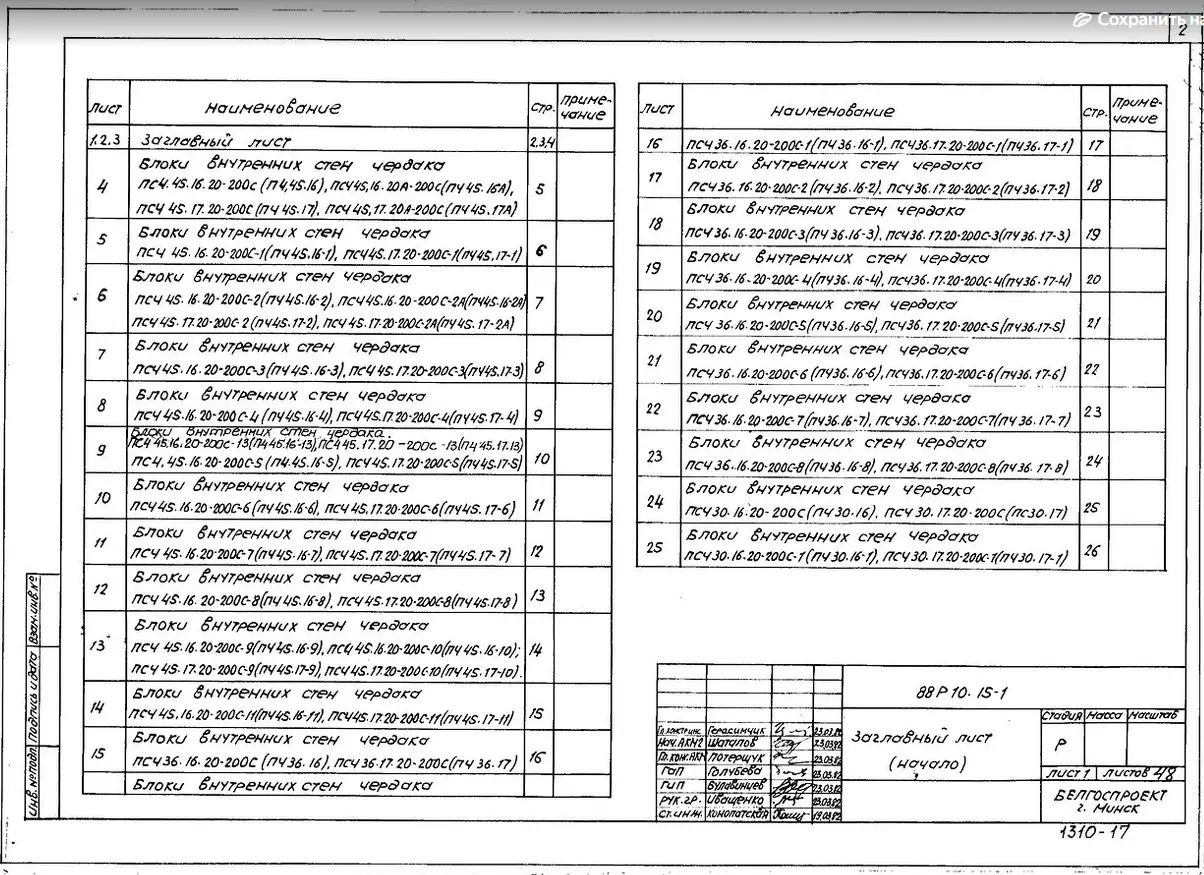 Сохранить на
2
Лист Наименование Стр. Примечание
1.2.3 Заглавный лист 2.3.4
Блоки внутренних стен чердака
4 ПСЧ.45.16.20-200С (ПЧ.45.16), ПСЧ45.16.20А-200С(ПЧ45.16А), 5
ПСЧ 45.17.20-200С(ПЧ45.17), ПСЧ 45.17.20А-200С(ПЧ45.17А)
5 Блоки внутренних стен чердака 6
ПСЧ 45.16.20-200С-1(ПЧ45.16-1), ПСЧ45.17.20-200С-1(ПЧ45.17-1)
Блоки внутренних стен чердака
6 ПСЧ 45.16.20-200С-2(ПЧ45.16-2), ПСЧ45.16.20-200С-2А(ПЧ45.16-2А) 7
ПСЧ 45.17.20-200С-2(ПЧ45.17-2), ПСЧ 45.17.20-200С-2А(ПЧ45.17-2А)
7 Блоки внутренних стен чердака
ПСЧ45.16.20-200С-3(ПЧ45.16-3), ПСЧ45.17.20-200С-3(ПЧ45.17-3) 8
8 Блоки внутренних стен чердака
ПСЧ 45.16.20-200С-4(ПЧ45.16-4), ПСЧ45.17.20-200С-4(ПЧ45.17-4) 9
Блоки внутренних стен чердака.
9 ПСЧ 45.16.20-200С-13(ПЧ45.16-13), ПСЧ 45.17.20-200С-13(ПЧ45.17.13)
ПСЧ.45.16.20-200С-5(ПЧ.45.16-5), ПСЧ45.17.20-200С-5(ПЧ45.17-5) 10
10 Блоки внутренних стен чердака
ПСЧ 45.16.20-200С-6(ПЧ45.16-6), ПСЧ45.17.20-200С-6(ПЧ45.17-6) 11
11 Блоки внутренних стен чердака
ПСЧ 45.16.20-200С-7(ПЧ45.16-7), ПСЧ45.17.20-200С-7(ПЧ45.17-7) 12
12 Блоки внутренних стен чердака
ПСЧ 45.16.20-200С-8(ПЧ45.16-8), ПСЧ45.17.20-200С-8(ПЧ45.17-8) 13
Блоки внутренних стен чердака
13 ПСЧ 45.16.20-200С-9(ПЧ45.16-9), ПСЧ 45.16.20-200С-10(ПЧ45.16-10); 14
ПСЧ 45.17.20-200С-9(ПЧ45.17-9), ПСЧ 45.17.20-200С-10(ПЧ45.17-10).
14 Блоки внутренних стен чердака
ПСЧ 45.16.20-200С-11(ПЧ45.16-11), ПСЧ45.17.20-200С-11(ПЧ45.17-11) 15
15 Блоки внутренних стен чердака
ПСЧ36.16.20-200С(ПЧ36.16), ПСЧ36.17.20-200С(ПЧ36.17) 16
Блоки внутренних стен чердака
Лист Наименование Стр. Примечание
16 ПСЧ36.16.20-200С-1(ПЧ36.16-1), ПСЧ36.17.20-200С-1(ПЧ36.17-1) 17
17 Блоки внутренних стен чердака
ПСЧ36.16.20-200С-2(ПЧ36.16-2), ПСЧ36.17.20-200С-2(ПЧ36.17-2) 18
18 Блоки внутренних стен чердака
ПСЧ36.16.20-200С-3(ПЧ36.16-3), ПСЧ36.17.20-200С-3(ПЧ36.17-3) 19
19 Блоки внутренних стен чердака
ПСЧ36.16.20-200С-4(ПЧ36.16-4), ПСЧ36.17.20-200С-4(ПЧ36.17-4) 20
20 Блоки внутренних стен чердака
ПСЧ 36.16.20-200С-5(ПЧ36.16-5), ПСЧ36.17.20-200С-5(ПЧ36.17-5) 21
21 Блоки внутренних стен чердака
ПСЧ36.16.20-200С-6(ПЧ36.16-6), ПСЧ36.17.20-200С-6(ПЧ36.17-6) 22
22 Блоки внутренних стен чердака
ПСЧ36.16.20-200С-7(ПЧ36.16-7), ПСЧ36.17.20-200С-7(ПЧ36.17-7) 23
23 Блоки внутренних стен чердака
ПСЧ36.16.20-200С-8(ПЧ36.16-8), ПСЧ36.17.20-200С-8(ПЧ36.17-8) 24
24 Блоки внутренних стен чердака
ПСЧ30.16.20-200С(ПЧ30.16), ПСЧ30.17.20-200С(ПС30.17) 25
25 Блоки внутренних стен чердака
ПСЧ30.16.20-200С-1(ПЧ30.16-1), ПСЧ30.17.20-200С-1(ПЧ30.17-1) 26
Взам.инв.№
Подпись и дата
Инв.№ подл
88Р10.15-1
Гл.констр.инс. Герасимчик 23.03.82
Нач.АКМ2 Шаталов 23.03.82
Гл.кон.АКМ Потерщук 23.03.82
ГАП Голубева 23.03.82
ГИП Булавинцев 23.03.82
Рук.гр. Иващенко 23.03.82
Ст.инж. Конопатская 19.03.82
Заглавный лист
(начало)
Стадия Масса Масштаб
Р
Лист 1 Листов 48
БЕЛГОСПРОЕКТ
г. Минск
1310-17